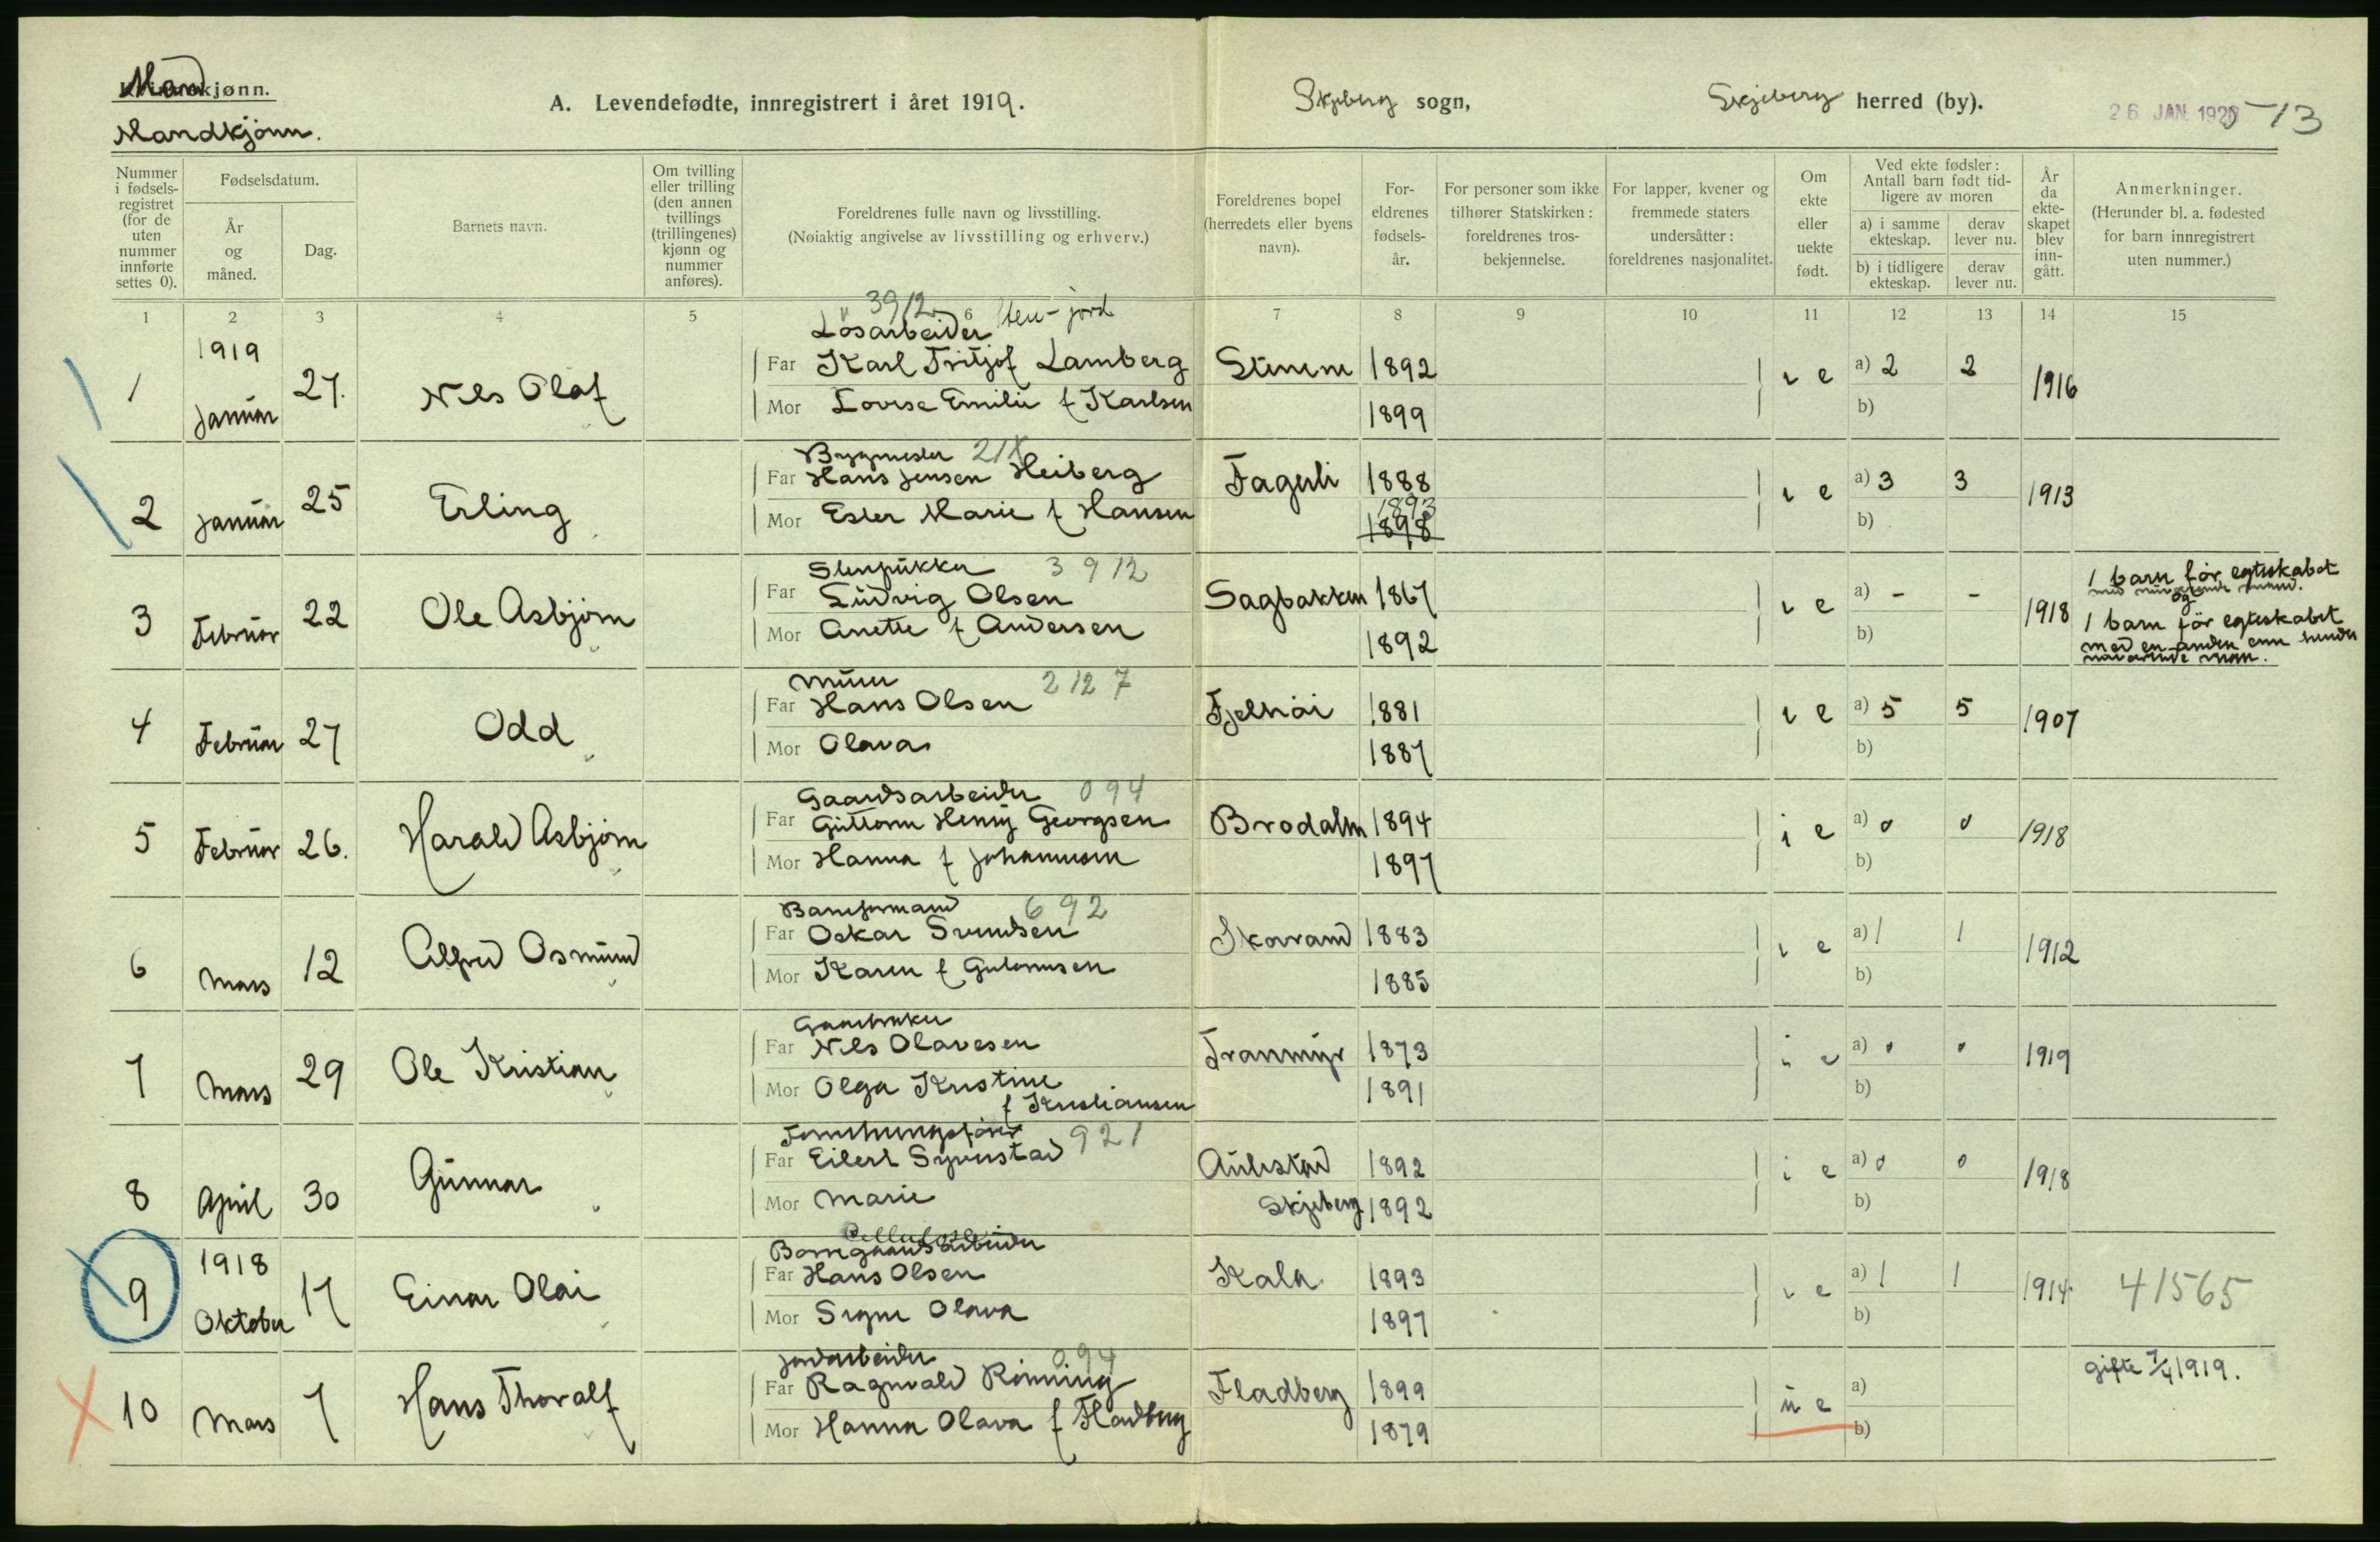 Mandkjønn.
A. Levendefødte, innregistrert i året 1919.
Skjeberg sogn,
Skjeberg herred (by).
26 JAN. 1920
13
Mandkjönn.
Nummer i fødsels-registret (for de uten nummer innførte settes 0).
Fødselsdatum.
År og måned.
Dag.
Barnets navn.
Om tvilling eller trilling (den annen tvillings (trillingenes) kjønn og nummer anføres).
Foreldrenes fulle navn og livsstilling.
(Nøiaktig angivelse av livsstilling og erhverv.)
Foreldrenes bopel (herredets eller byens navn).
For-eldrenes fødsels-år.
For personer som ikke tilhører Statskirken: foreldrenes tros-bekjennelse.
For lapper, kvener og fremmede staters undersåtter: foreldrenes nasjonalitet.
Om ekte eller uekte født.
Ved ekte fødsler: Antall barn født tid-ligere av moren
a) i samme ekteskap.
derav lever nu.
b) i tidligere ekteskap.
derav lever nu.
År da ekte-skapet blev inn-gått.
Anmerkninger.
(Herunder bl. a. fødested for barn innregistrert uten nummer.)
1 2 3 4 5 6 7 8 9 10 11 12 13 14 15
3912 sten-jord
Lösarbeider
1 1919 Januar 27. Nils Olaf
Far Karl Fritjof Lamberg Stenene 1892 i e a) 2 2 1916
Mor Lovise Emilie f Karlsen 1899 b)
Bygmester 21X
2 Januar 25 Erling
Far Hans Jensen Heiberg Fagerli 1888 i e a) 3 3 1913
Mor Ester Marie f Hansen 1893 1898 b)
Stenpukker 3912
3 Februar 22 Ole Asbjörn
Far Ludvig Olsen Sagbakken 1867 i e a) - - 1918
Mor Anette f Andersen 1892 b)
1 barn för egteskabet
med nuværende mand.
og
1 barn för egteskabet
med en anden enn hendes
nuværende man.
Murer 2127
4 Februar 27 Odd
Far Hans Olsen Fjelhöi 1881 i e a) 5 5 1907
Mor Olava 1887 b)
Gaardsarbeider 094
5 Februar 26. Harald Asbjörn
Far Guttorm Henry Georgsen Brodalm 1894 i e a) 0 0 1918
Mor Hanna f Johannesen 1897 b)
Baneformand 692
6 Mars 12 Alfred Osmund
Far Oskar Svendsen Skovrand 1883 i e a) 1 1 1912
Mor Karen f Gulbrnsen 1885 b)
Gaardbruker
7 Mars 29 Ole Kristian
Far Nils Olavesen Tranmyr 1873 i e a) 0 0 1919
Mor Olga Kristine 1891 b)
f Kristiansen
Forretningsförer 921
8 April 30 Gunnar
Far Eilert Syverstad 1892 i e a) 0 0 1918
Mor Marie Skjeberg 1892 b)
Cellulose
Borregaardsarbeider
9 1918 Oktober 17 Einar Olai
Far Hans Olsen Kala 1893 i e a) 1 1 1914. 41565
Mor Signe Olava 1897 b)
Jordarbeider 094
10 Mars 7 Hans Thoralf
Far Ragnvald Rönning Fladberg 1899 u e a)
Mor Hanna Olava f Fladberg 1879 b)
gifte 7/4 1919.